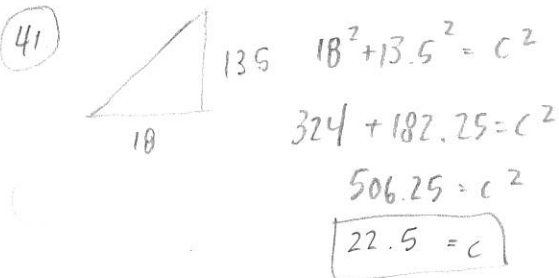 41
13.5 18² + 13.5² = c²
18 324 + 182.25 = c²
506.25 = c²
22.5 = c